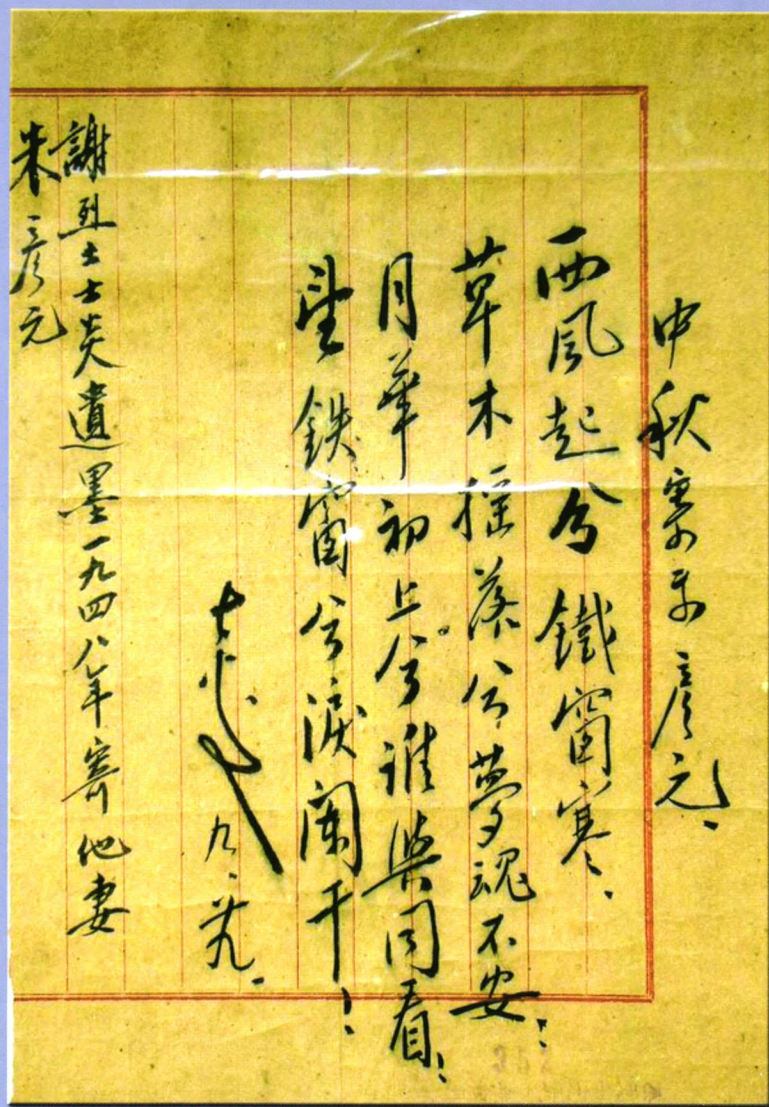 中秋寄予彥元、
西風起兮鐵窗寒、
草木摇落兮夢魂不安；
月華初上兮誰與同看；
望鉄窗兮淚闌干！
士炎 九、廿九、
謝烈士士炎遺墨一九四八年寄他妻
朱彥元